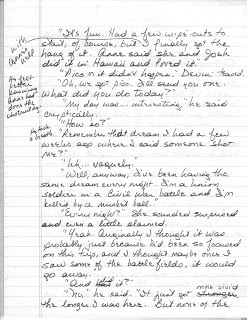 "It's fun. Had a few wipe-outs to
start, of course, but I finally got the
hang of it. Anne said she and Josh
did it in Hawaii and loved it."
"Pics or it didn't happen," Devin teased.
"Oh, we got pics. I'll send you one.
What did you do today?"
"My day was... interesting," he said
cryptically.
"How so?"
"Remember that dream I had a few
weeks ago where I said someone shot
me?"
"Uh... vaguely."
"Well, anyway, I've been having the
same dream every night. I'm a Union
soldier in a Civil War battle and I'm
killed by a musket ball."
"Every night?" She sounded surprised
and even a little alarmed.
"Yeah. Originally I thought it was
probably just because I'd been so focused
on this trip, and I thought maybe once I
saw some of the battlefields, it would
go away."
"And it?"
"No," he said. "It just got stronger more vivid
the longer I was here. But none of the
with